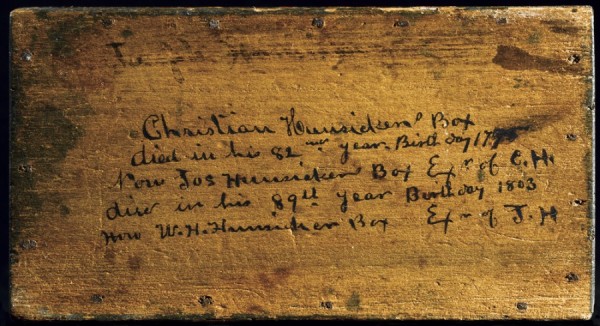 Christian Hunsicker' Box
died in his 82nd year. Birth day
Now Jos Hunsicker Box Exr of C.H.
died in his 89th year Birthday 1803
Now W.H. Hunsicker Box Exr of J.H